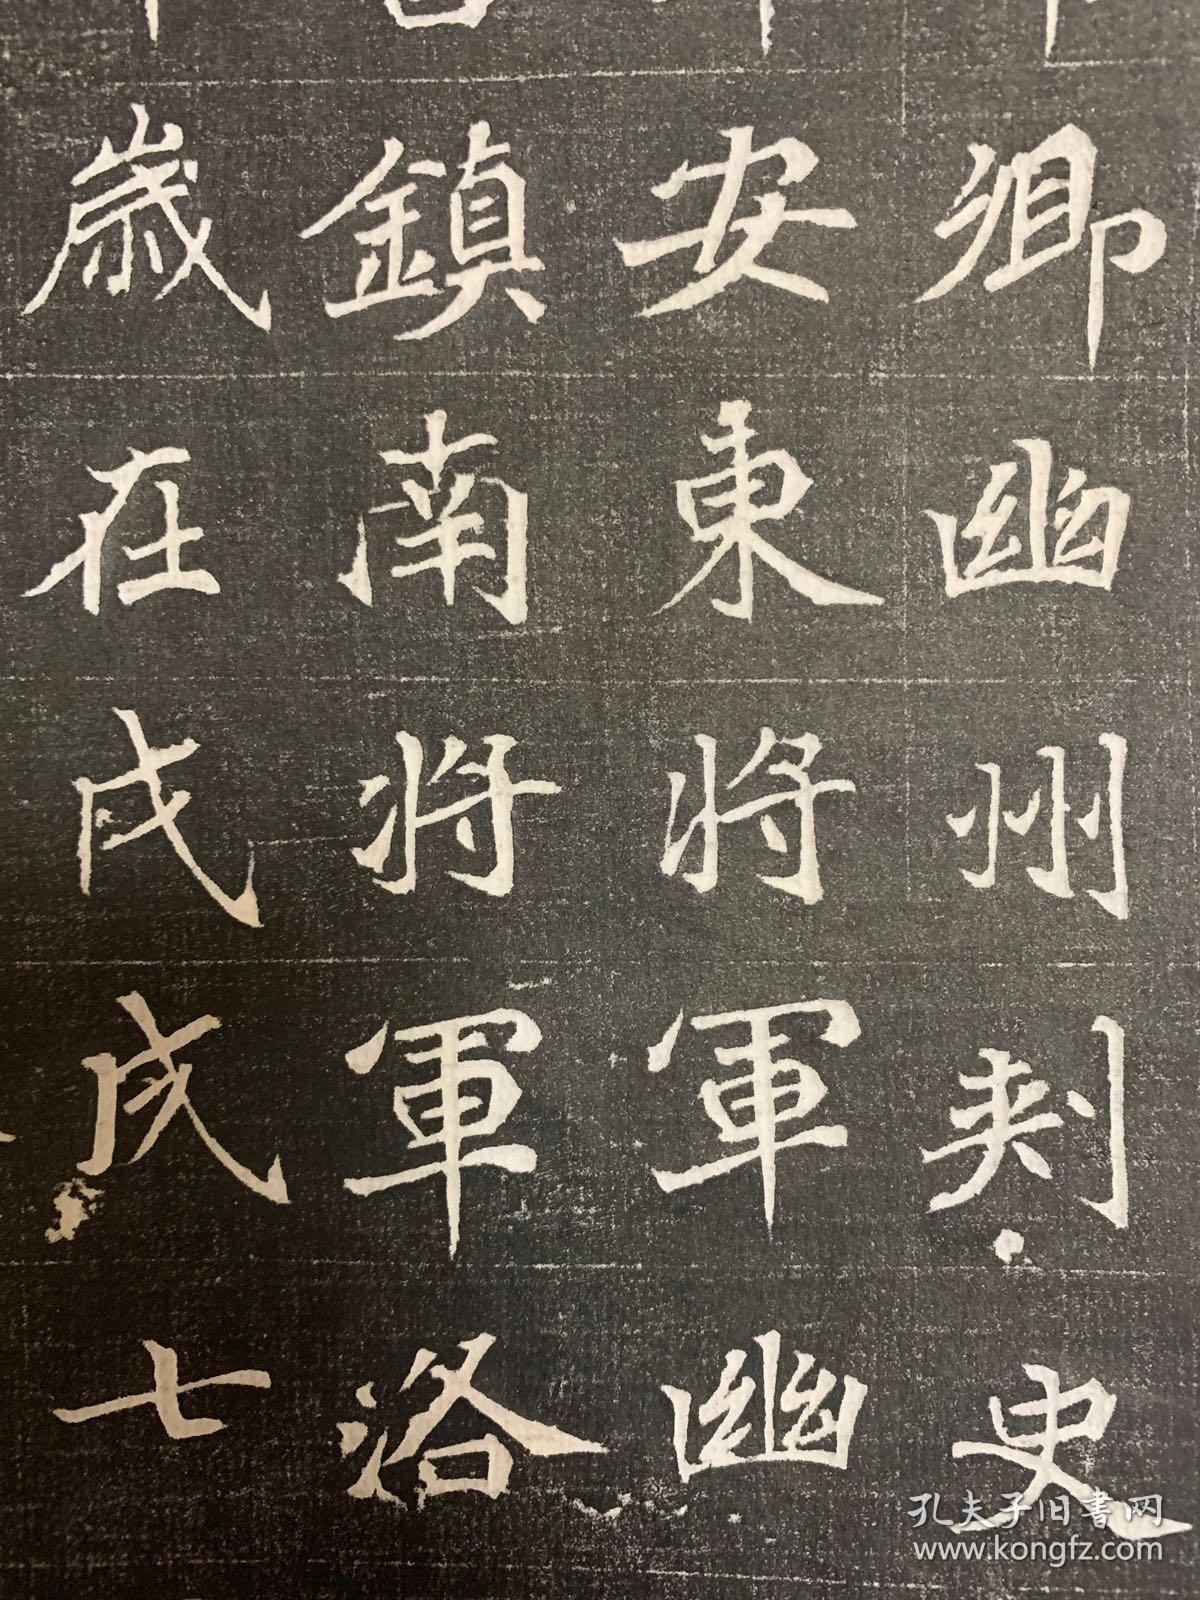 卿幽州刺史
安東將軍幽
鎮南將軍洛
歲在戊戌七
孔夫子旧書网
www.kongfz.com